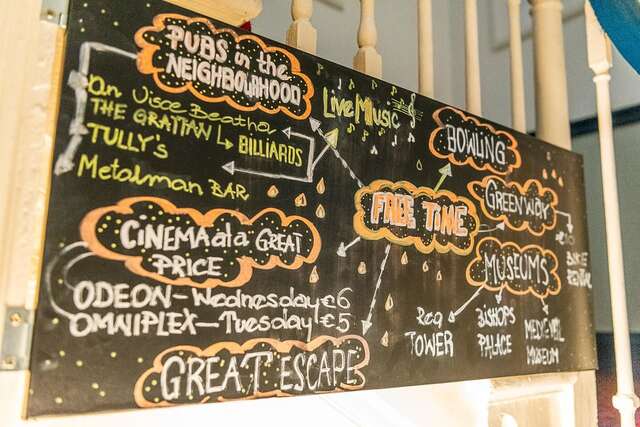 PUBS in the
NEIGHBOURHOOD
an Uisce Beatha
THE GRATTAN BILLIARDS
TULLY'S
Metalman BAR
Live Music
BOWLING
FREE TIME
GREENWAY
BIKE
RENTAL
MUSEUMS
Reg
TOWER
BISHOPS
PALACE
MEDIEVAL
MUSEUM
CiNEMA at a GREAT
PRICE
ODEON-Wednesday €6
OMNIPLEX-Tuesday €5
GREAT ESCAPE